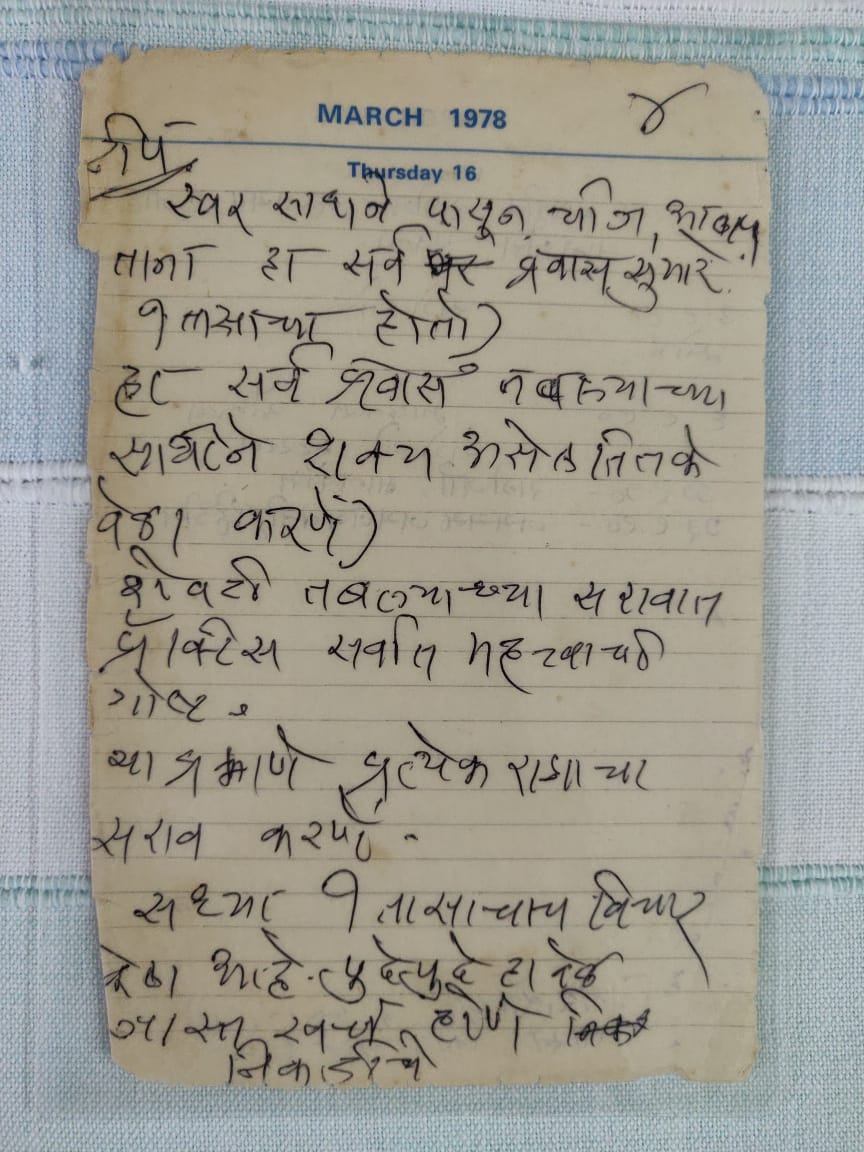 MARCH 1978 ४
टीप
Thursday 16
स्वर साधने पासून, चीज, आलाप,
ताना हा सर्व प्रवास सुमारे
१ तासाचा होतो
हा सर्व प्रवास तबल्याच्या
साथीने शक्य असेल तितके
वेळा करणे
शेवटी तबल्याच्या सरावात
प्रॅक्टिस सर्वात महत्वाची
गोष्ट.
या प्रमाणे प्रत्येक रागाचा
सराव करणे.
सध्या १ तासाचाच विचार
केला आहे. पुढे पुढे हा वेळ
जास्त खर्च होणे
निकडीचे